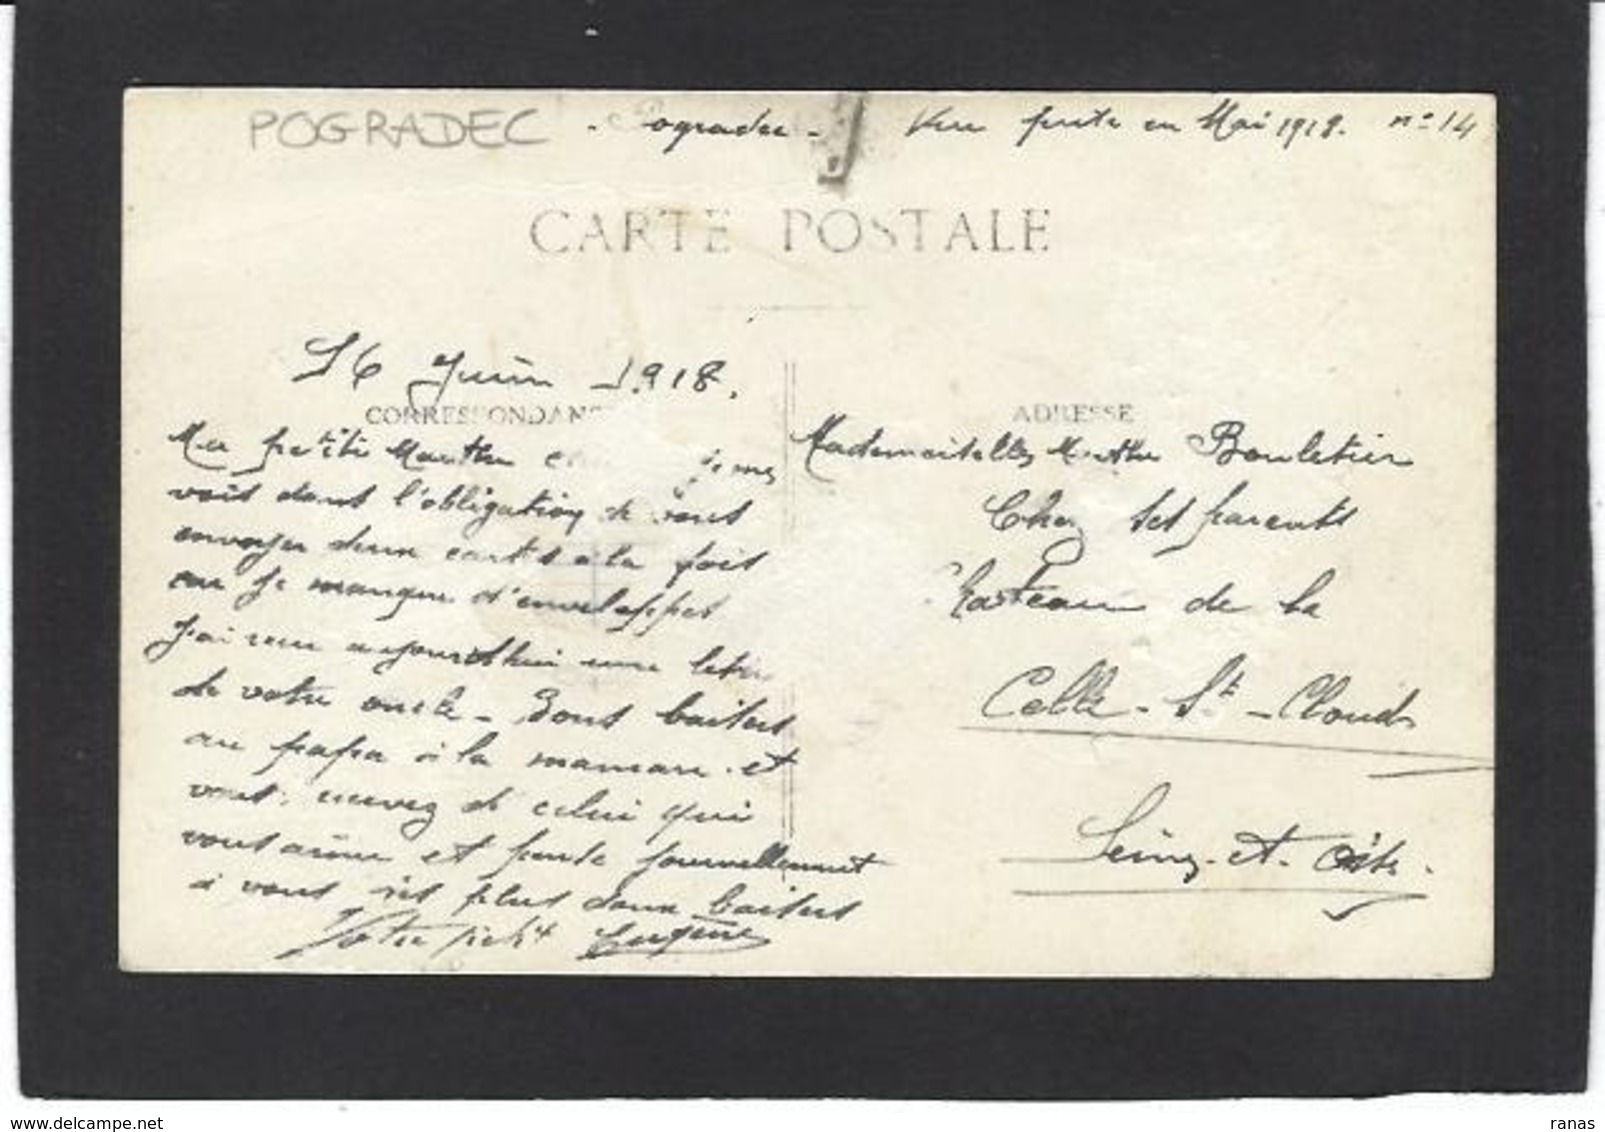 POGRADEC - Pogradec - Vue prise en Mai 1918. n° 14
CARTE POSTALE
16 Juin 1918.
CORRESPONDANCE
Ma petite Marthe je me
vois dans l'obligation de vous
envoyer deux cartes à la fois
car je manque d'enveloppes
J'ai reçu aujourd'hui une lettre
de votre oncle - Bons baisers
au papa à la maman et
vous recevez de celui qui
vous aime et pense journellement
à vous ses plus doux baisers
Votre petit Eugène
ADRESSE
Mademoiselle Marthe Bouletier
Chez ses parents
Chateau de la
Celle - St - Cloud
Seine - et - Oise.
delcampe.net
ranas